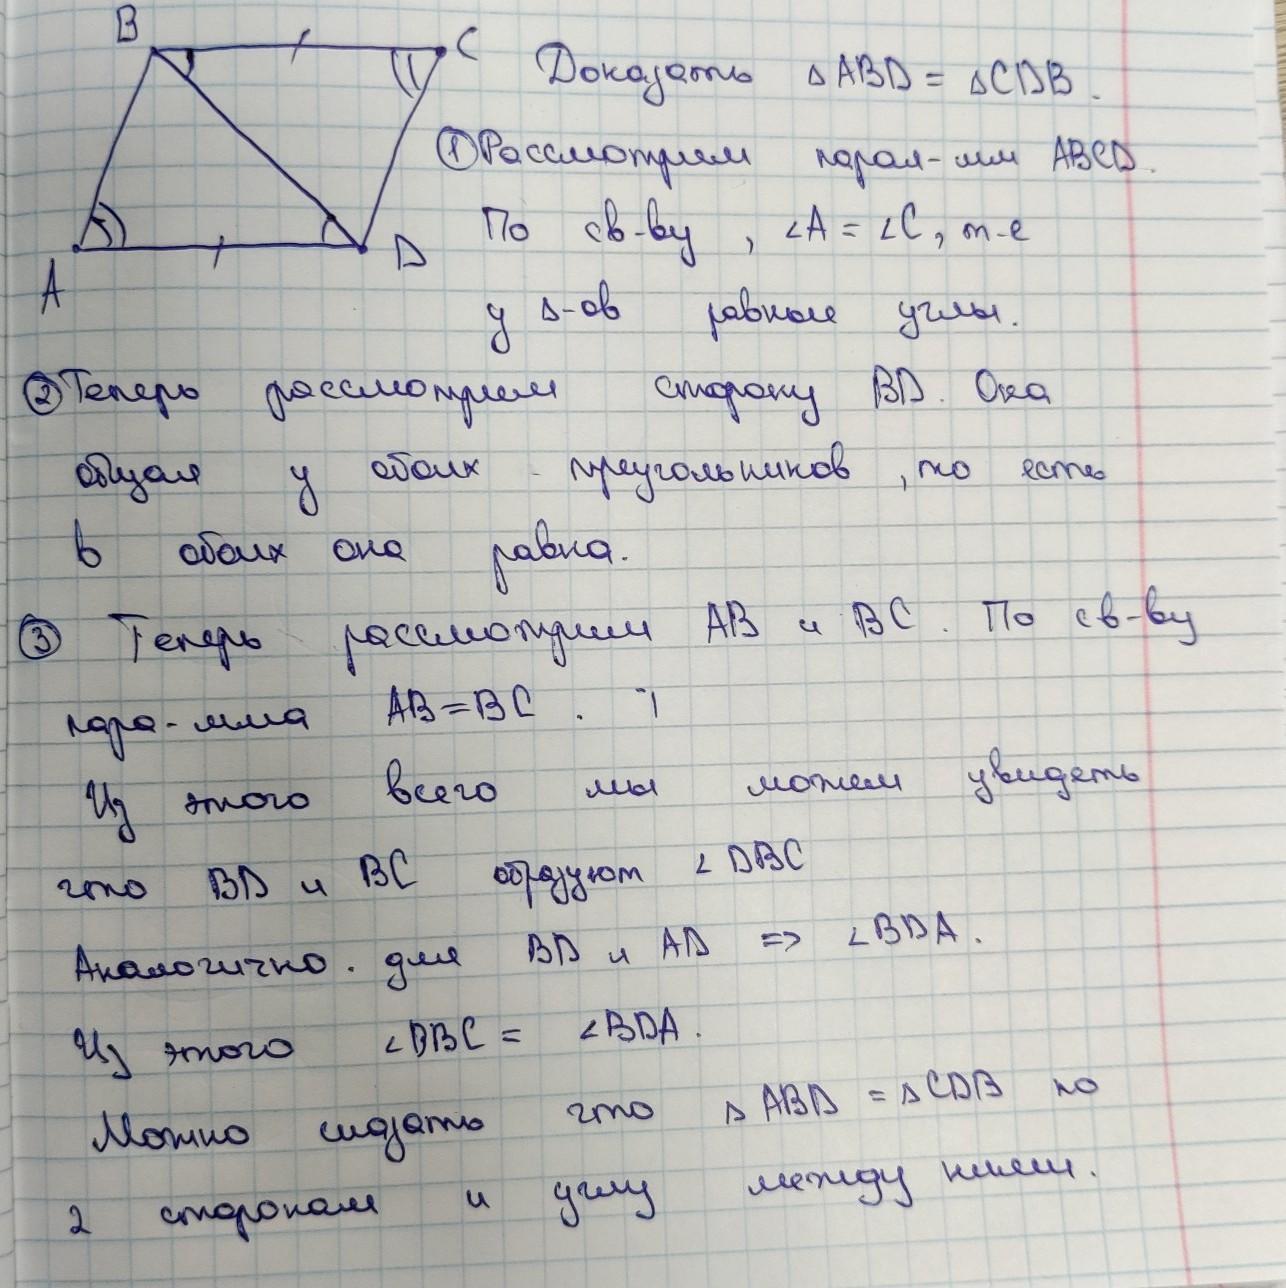 B
C
A
D
Доказать ΔABD = ΔCDB.
① Рассмотрим парал-мм ABCD.
По св-ву, ∠A = ∠C, т-е
у Δ-ов равные углы.
② Теперь рассмотрим сторону BD. Она
общая у обоих треугольников, то есть
в обоих она равна.
③ Теперь рассмотрим AB и BC. По св-ву
пара-мма AB = BC.
Из этого всего мы можем увидеть
что BD и BC образуют ∠DBC
Аналогично. для BD и AD => ∠BDA.
Из этого ∠DBC = ∠BDA.
Можно сказать что ΔABD = ΔCDB по
2 сторонам и углу между ними.